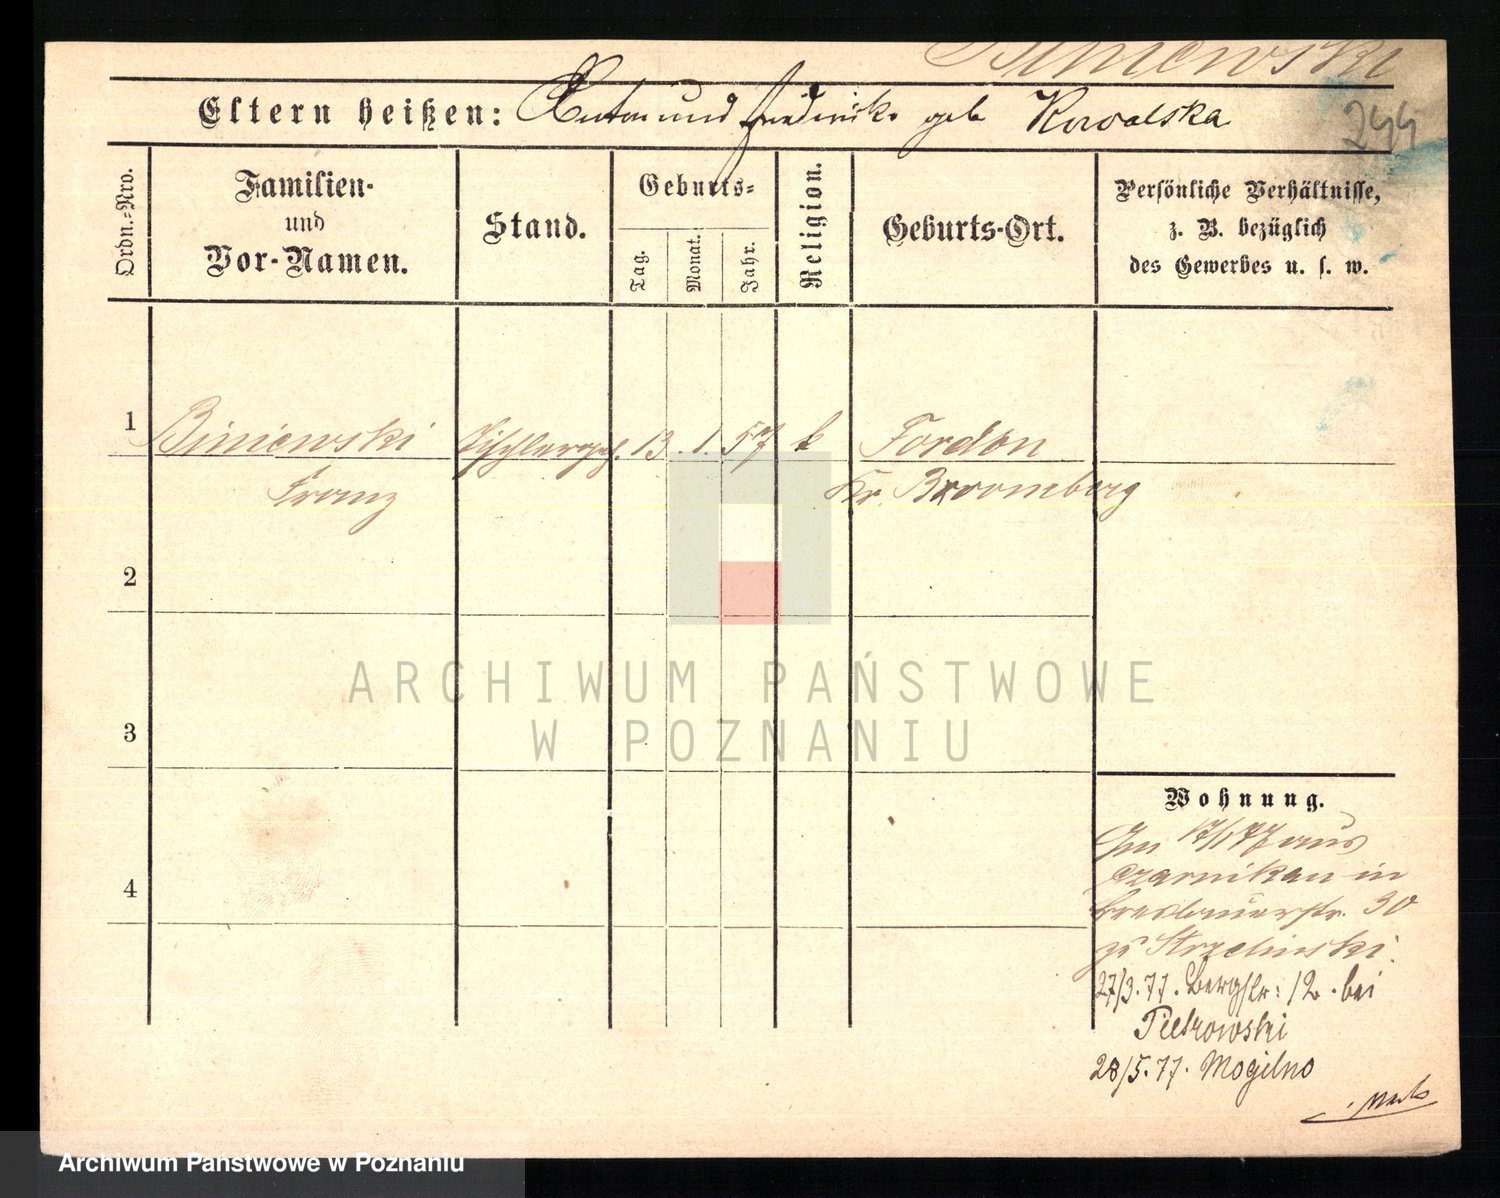 Biniewski
244
Eltern heißen: Anton und Friderike geb Kowalska
Ordn.-Nro.
Familien-
und
Vor-Namen.
Stand.
Geburts-
Tag.
Monat.
Jahr.
Religion.
Geburts-Ort.
Persönliche Verhältnisse,
z. B. bezüglich
des Gewerbes u. s. w.
1 Biniewski Tischlerges. 13. 1. 57 k Fordon
Franz Kr. Bromberg
2
3
4
ARCHIWUM PAŃSTWOWE
W POZNANIU
Wohnung.
Am 17/1 77 aus
Czarnikau in
Breslauerstr. 30
zu Strzelinski.
27/3. 77. Bergstr: 12. bei
Pietrowski
28/5. 77. Mogilno
Archiwum Państwowe w Poznaniu